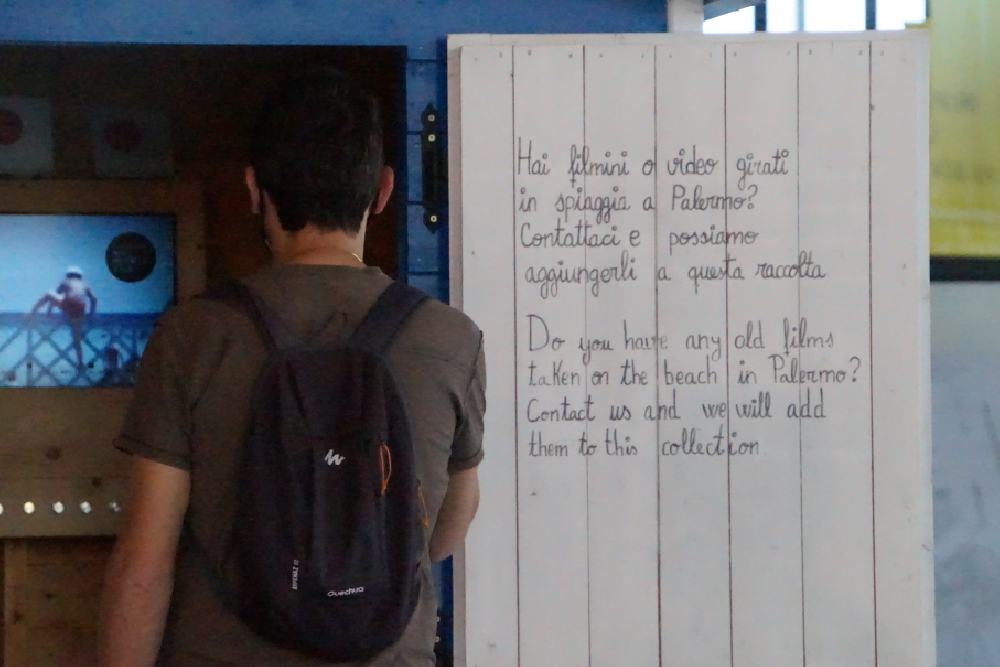 Hai filmini o video girati
in spiaggia a Palermo?
Contattaci e possiamo
aggiungerli a questa raccolta
Do you have any old films
taken on the beach in Palermo?
Contact us and we will add
them to this collection
QUECHUA